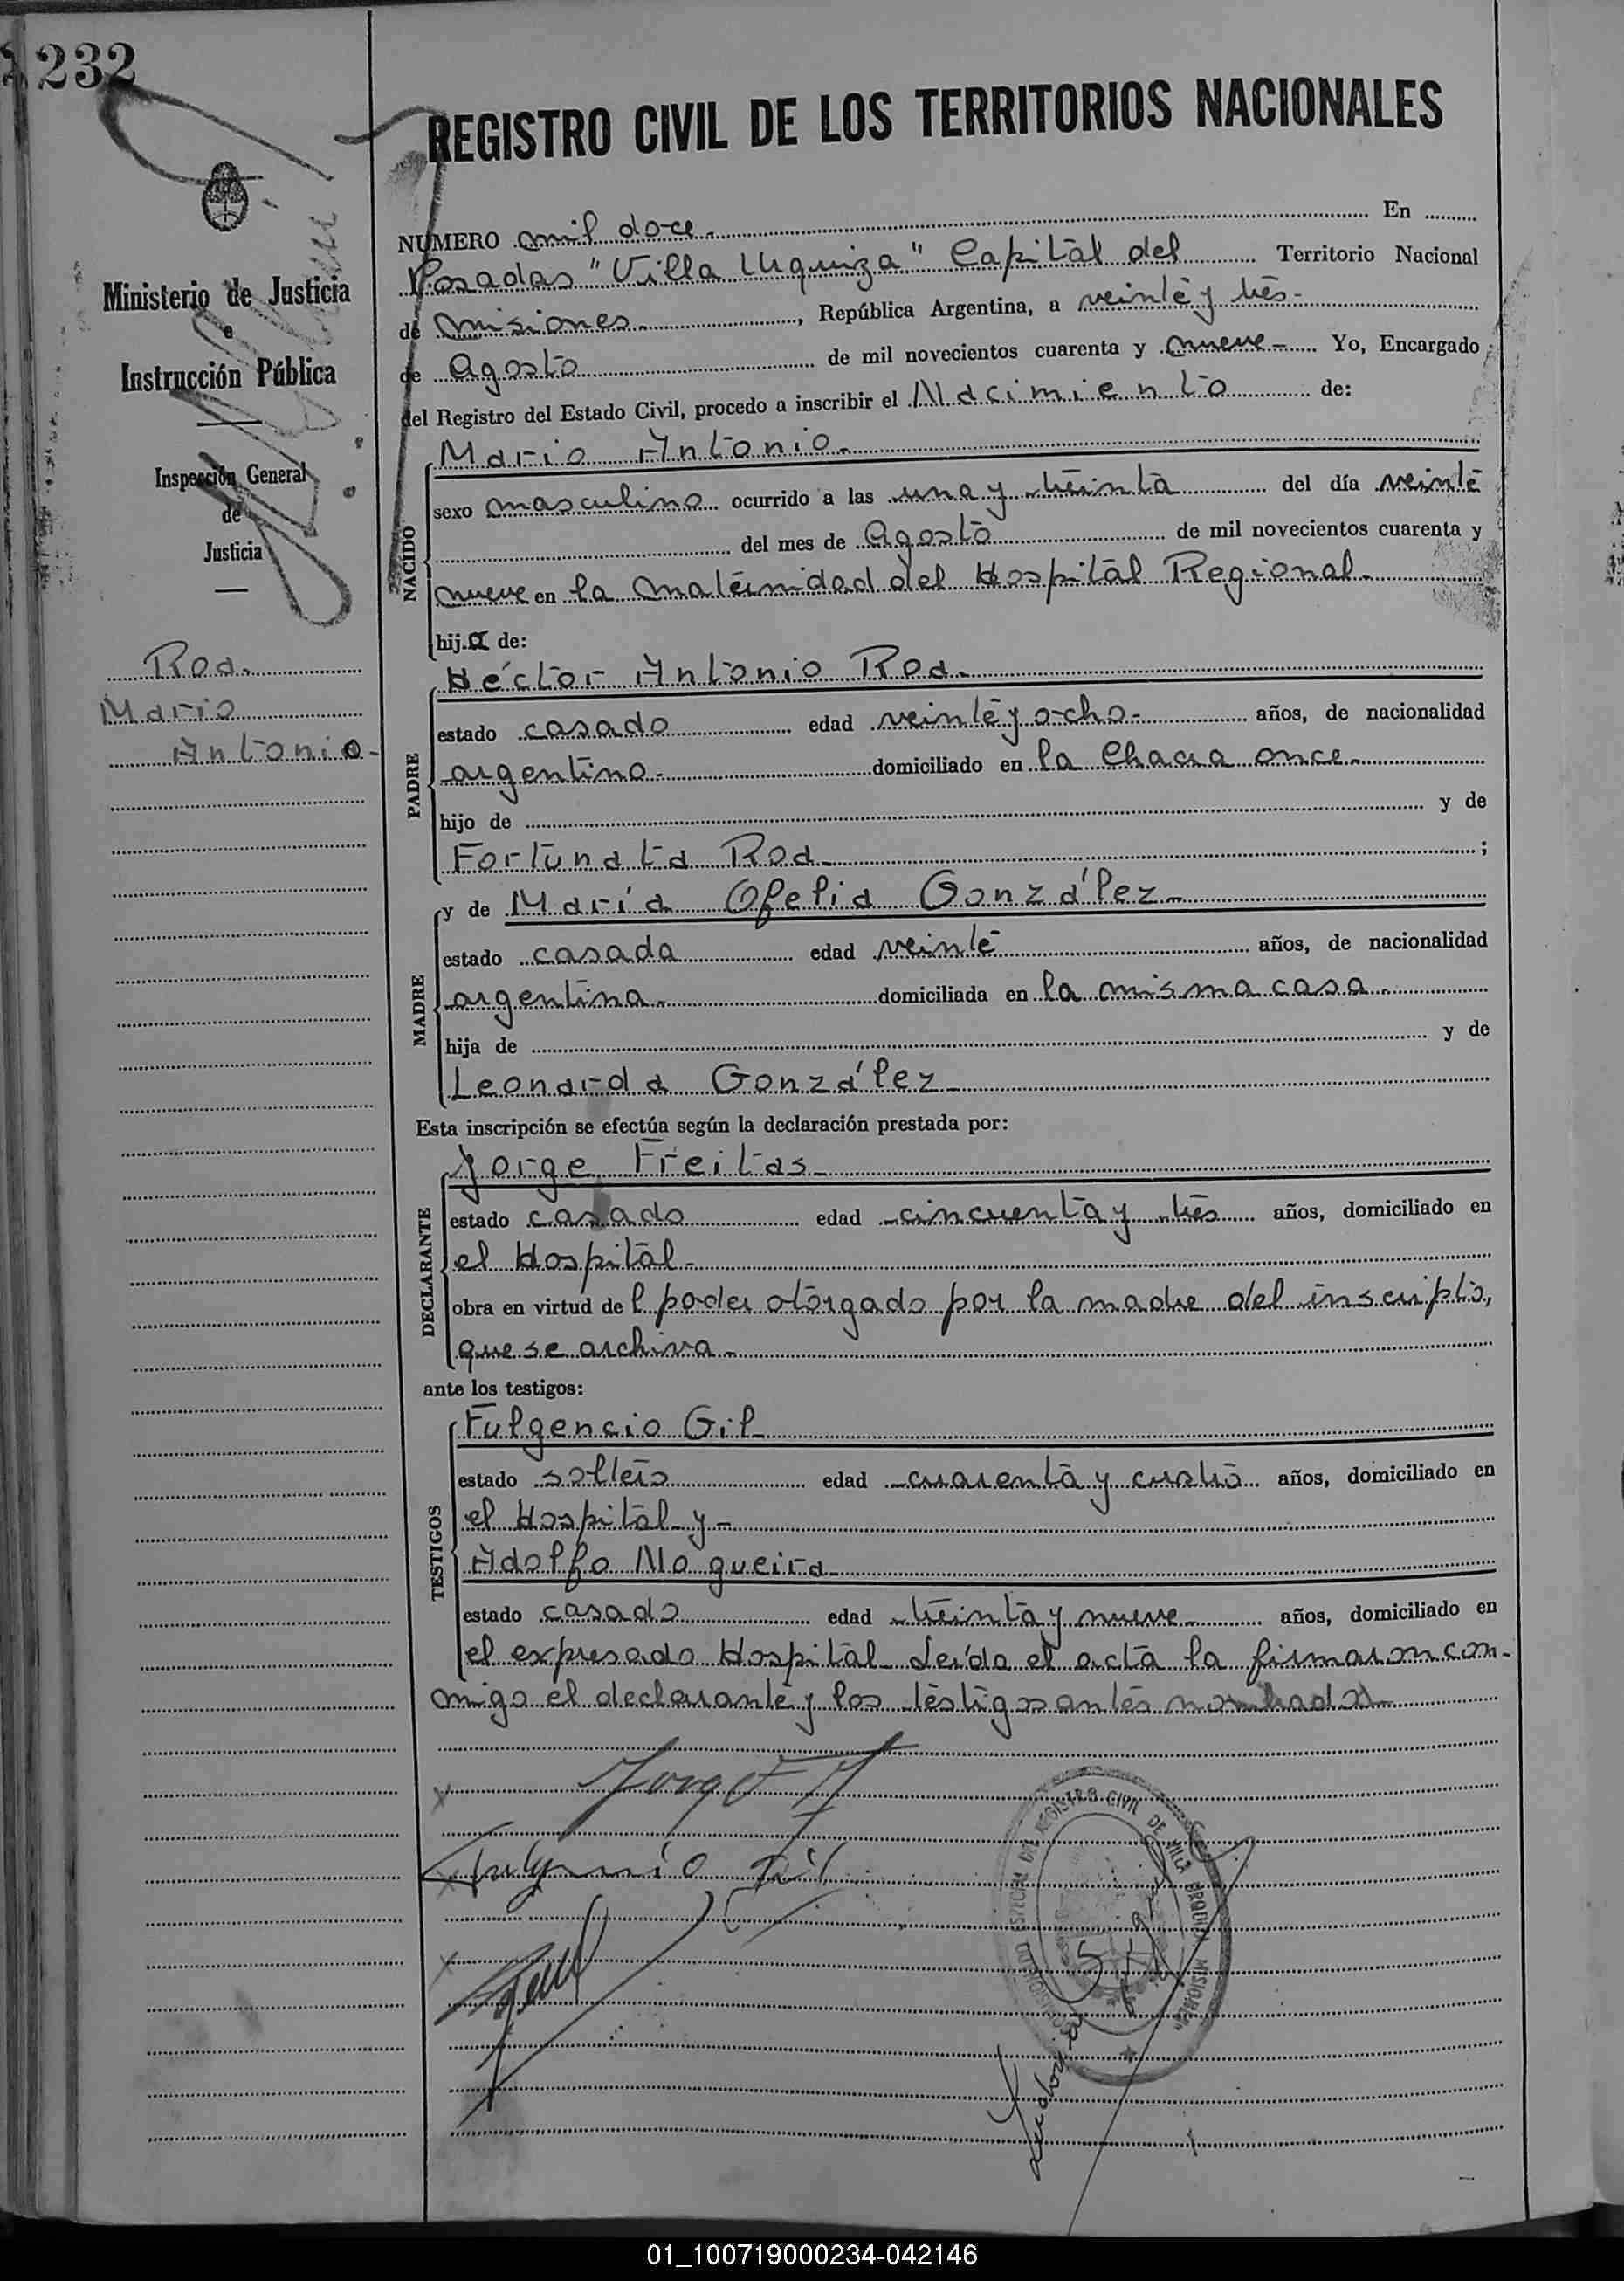 232
REGISTRO CIVIL DE LOS TERRITORIOS NACIONALES
Ministerio de Justicia
e
Instrucción Pública
Inspección General
de
Justicia
Roa.
Mario
Antonio-
NUMERO mil doce. En
Posadas "Villa Urquiza" Capital del Territorio Nacional
de Misiones. , República Argentina, a veinte y tres-
de Agosto de mil novecientos cuarenta y nueve- Yo, Encargado
del Registro del Estado Civil, procedo a inscribir el Nacimiento de:
NACIDO
Mario Antonio.
sexo masculino ocurrido a las una y treinta del día veinte
del mes de Agosto de mil novecientos cuarenta y
nueve en la maternidad del Hospital Regional.
hij.a de:
PADRE
Héctor Antonio Roa.
estado casado edad veinte y ocho- años, de nacionalidad
argentino- domiciliado en la Chacra once.
hijo de y de
Fortunata Roa- ;
MADRE
y de María Ofelia González-
estado casada edad veinte años, de nacionalidad
argentina. domiciliada en la misma casa.
hija de y de
Leonarda González-
Esta inscripción se efectúa según la declaración prestada por:
DECLARANTE
Jorge Freitas-
estado casado edad cincuenta y tres años, domiciliado en
el Hospital-
obra en virtud de l poder otorgado por la madre del inscripto,
que se archiva-
ante los testigos:
TESTIGOS
Fulgencio Gil-
estado soltero edad cuarenta y cuatro años, domiciliado en
el Hospital y-
Adolfo Nogueira-
estado casado edad treinta y nueve- años, domiciliado en
el expresado Hospital- Leída el acta la firmaron con-
migo el declarante y los testigos antes nombrados-
Jorge F
Fulgencio Gil
REGISTRO CIVIL DE VILLA URQUIZA MISIONES
01_100719000234-042146